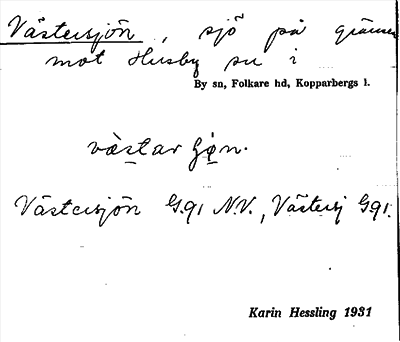 Västersjön, sjö på gränsen
mot Husby sn i
By sn, Folkare hd, Kopparbergs l.
västar ʃøn.
Västersjön G.91 N.V., Västersj G91.
Karin Hessling 1931